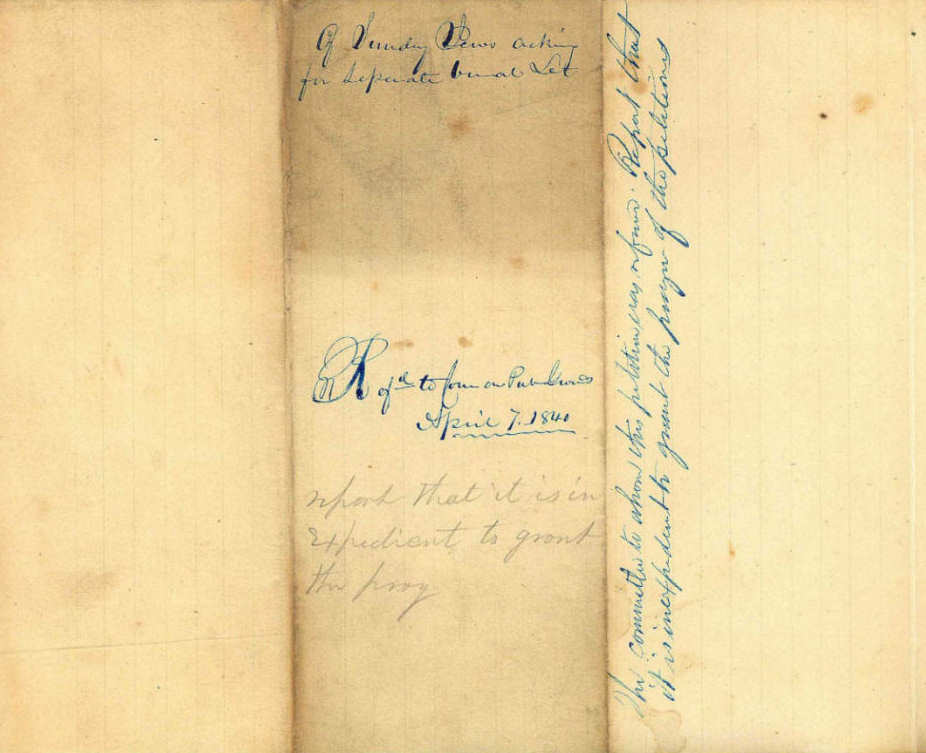 Of Sunday Jews asking
for Seperate burial Lot
Refd to Com on Pub Grounds
April 7. 1840
report that it is in
expedient to grant
the pray
The Committee to whom this petition was referred. Report that
it is inexpedient to grant the prayer of the petitioners